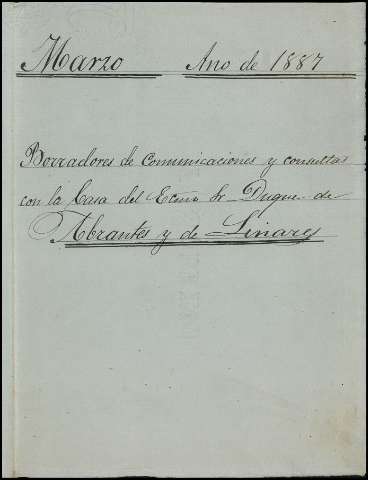 Marzo Ano de 1887
Borradores de Comunicaciones y consultas
con la Casa del Ecmo Sr Duque de
Abrantes y de Linares